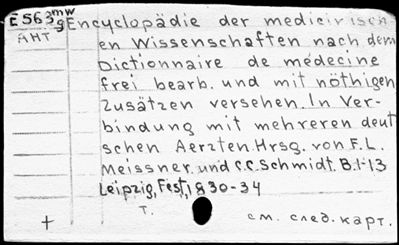 E 563 mw/g Encyclopädie der medicinisch-
АНТ en Wissenschaften nach dem
Dictionnaire de médecine
frei bearb. und mit nöthigen
Zusätzen versehen. In Ver-
bindung mit mehreren deut
schen Aerzten. Hrsg. von F.L.
Meissner und C.C. Schmidt. B.1-13
Leipzig, Fest, 1830-34
т.
+ см. след. карт.